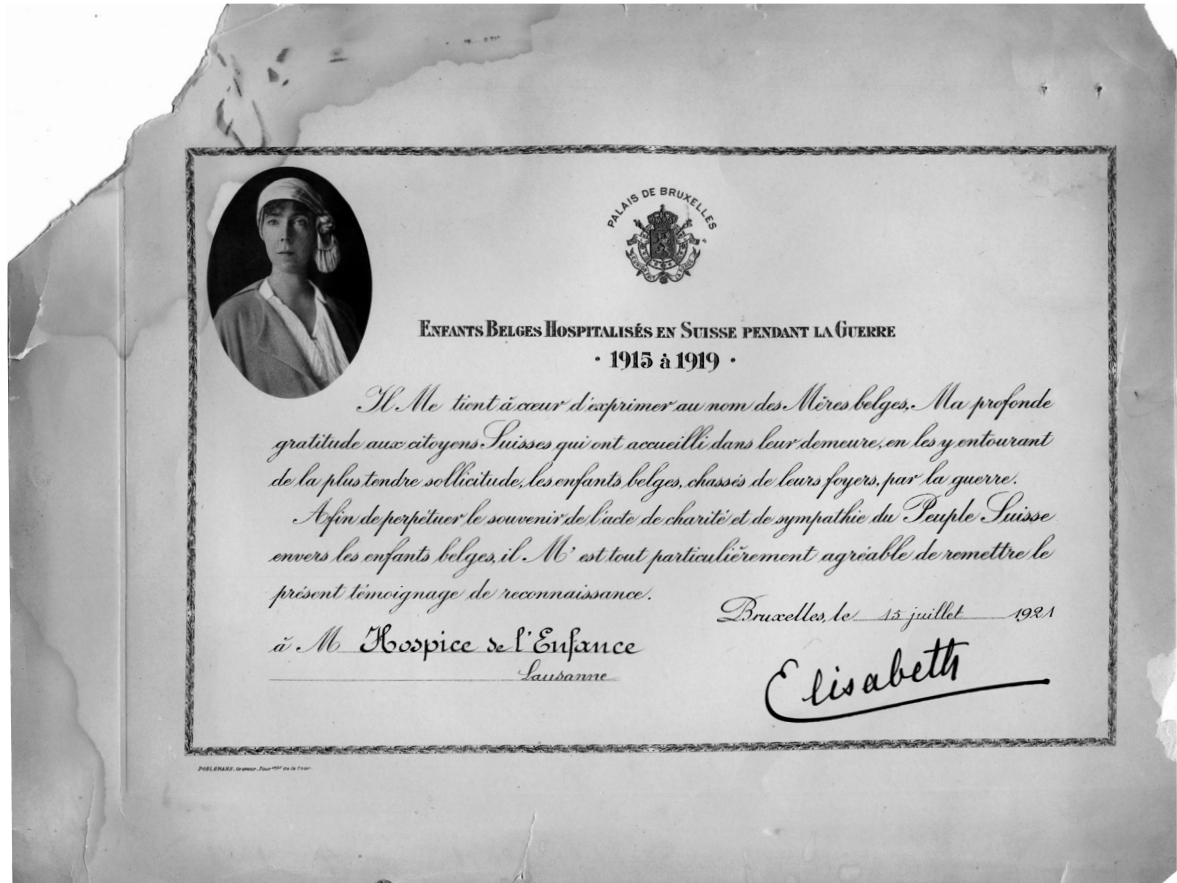 PALAIS DE BRUXELLES
ENFANTS BELGES HOSPITALISÉS EN SUISSE PENDANT LA GUERRE
· 1915 à 1919 ·
Il Me tient à cœur d'exprimer au nom des Mères belges, Ma profonde
gratitude aux citoyens Suisses qui ont accueilli dans leur demeure, en les y entourant
de la plus tendre sollicitude, les enfants belges, chassés de leurs foyers, par la guerre.
Afin de perpétuer le souvenir de l'acte de charité et de sympathie du Peuple Suisse
envers les enfants belges, il M'est tout particulièrement agréable de remettre le
présent témoignage de reconnaissance.
Bruxelles, le 15 juillet 1921
à M Hospice de l'Enfance
Lausanne
Elisabeth
Graveur, de la Cour